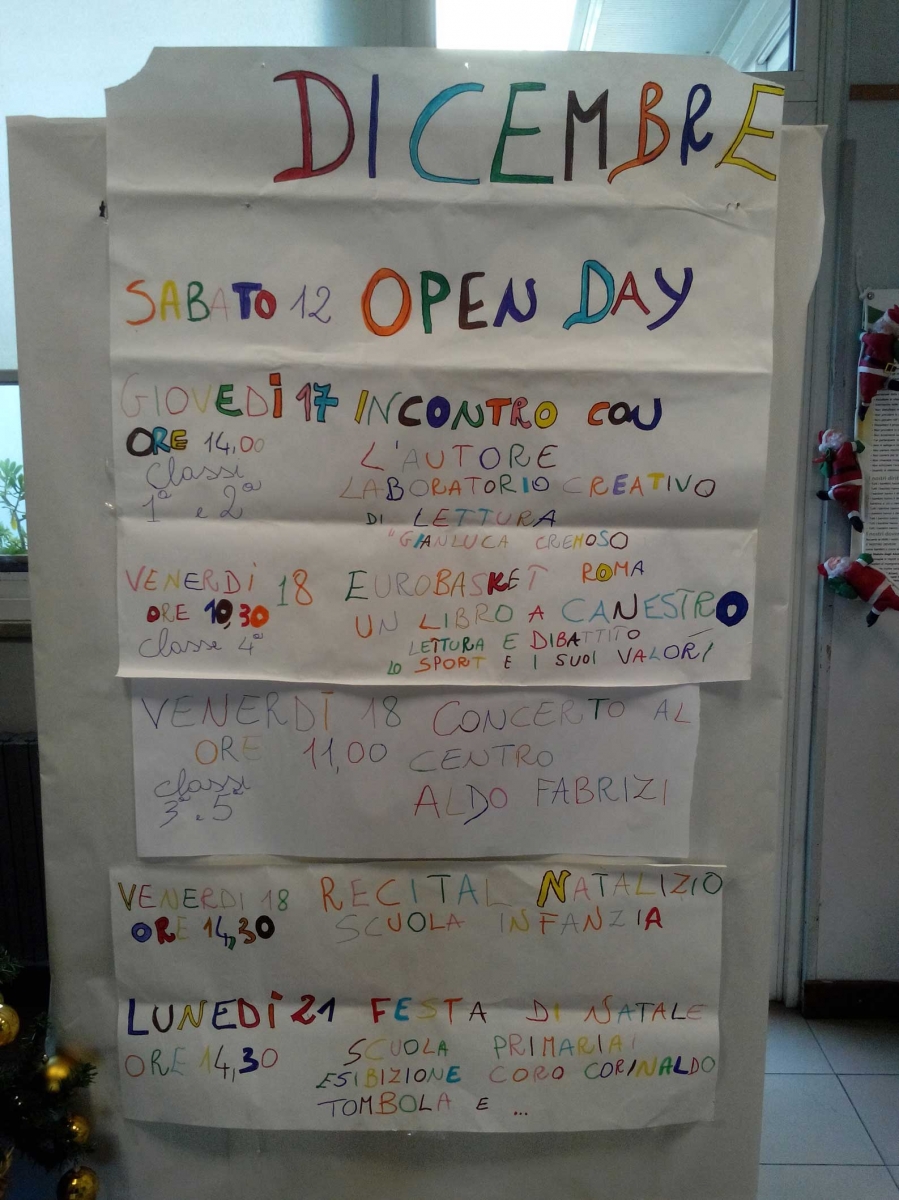 DICEMBRE
SABATO 12 OPEN DAY
GIOVEDÌ 17 INCONTRO CON
ORE 14,00 L'AUTORE
Classi LABORATORIO CREATIVO
1ª e 2ª DI LETTURA
"GIANLUCA CREMOSO
VENERDÌ 18 EUROBASKET ROMA
ORE 10,30 UN LIBRO A CANESTRO
Classe 4ª LETTURA E DIBATTITO
LO SPORT E I SUOI VALORI
VENERDÌ 18 CONCERTO AL
ORE 11,00 CENTRO
Classi ALDO FABRIZI
3ª e 5ª
VENERDI 18 RECITAL NATALIZIO
ORE 14,30 SCUOLA INFANZIA
LUNEDÌ 21 FESTA DI NATALE
ORE 14,30 SCUOLA PRIMARIA:
ESIBIZIONE CORO CORINALDO
TOMBOLA E ...